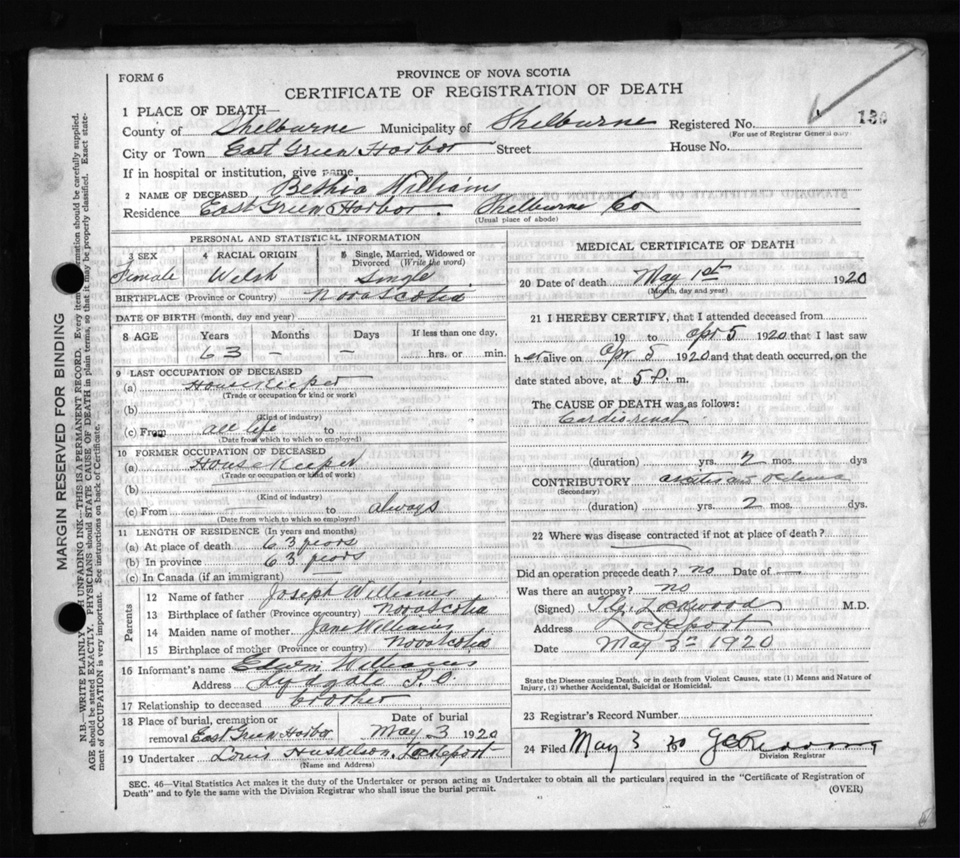 FORM 6
PROVINCE OF NOVA SCOTIA
CERTIFICATE OF REGISTRATION OF DEATH
1 PLACE OF DEATH—
County of Shelburne Municipality of Shelburne Registered No. 130
(For use of Registrar General only)
City or Town East Green Harbor Street House No.
If in hospital or institution, give name
2 NAME OF DECEASED Bethia Williams
Residence East Green Harbor. Shelburne Co
(Usual place of abode)
PERSONAL AND STATISTICAL INFORMATION
3 SEX 4 RACIAL ORIGIN 5 Single, Married, Widowed or Divorced (Write the word)
Female Welsh Single
BIRTHPLACE (Province or Country) Nova Scotia
DATE OF BIRTH (month, day and year)
8 AGE Years Months Days If less than one day,
63 — — hrs. or min.
9 LAST OCCUPATION OF DECEASED
(a) Housekeeper
(Trade or occupation or kind or work)
(b)
(Kind of industry)
(c) From all life to
(Date from which to which so employed)
10 FORMER OCCUPATION OF DECEASED
(a) Housekeeper
(Trade or occupation or kind of work)
(b)
(Kind of industry)
(c) From to always
(Date from which to which so employed)
11 LENGTH OF RESIDENCE (In years and months)
(a) At place of death 63 years
(b) In province 63 years
(c) In Canada (if an immigrant) —
Parents
12 Name of father Joseph Williams
13 Birthplace of father (Province or country) Nova Scotia
14 Maiden name of mother Jane Williams
15 Birthplace of mother (Province or country) Nova Scotia
16 Informant's name Edwin Williams
Address Lydgate P.O.
17 Relationship to deceased brother
18 Place of burial, cremation or removal East Green Harbor Date of burial May 3 1920
19 Undertaker Louis Huskilson, Lockeport
(Name and Address)
MEDICAL CERTIFICATE OF DEATH
20 Date of death May 1st 1920
(Month, day and year)
21 I HEREBY CERTIFY, that I attended deceased from
19 to Apr 5 1920 that I last saw
h er alive on Apr 5 1920 and that death occurred, on the
date stated above, at 5 P. m.
The CAUSE OF DEATH was as follows:
Cardio-renal
(duration) yrs. 2 mos. dys
CONTRIBUTORY ascites and Oedema
(Secondary)
(duration) yrs. 2 mos. dys.
22 Where was disease contracted if not at place of death?
Did an operation precede death? no Date of —
Was there an autopsy? no
(Signed) Lockwood M.D.
Address Lockeport
Date May 3rd 1920
State the Disease causing Death, or in death from Violent Causes, state (1) Means and Nature of
Injury, (2) whether Accidental, Suicidal or Homicidal.
23 Registrar's Record Number
24 Filed May 3 20
Division Registrar
SEC. 46—Vital Statistics Act makes it the duty of the Undertaker or person acting as Undertaker to obtain all the particulars required in the "Certificate of Registration of
Death" and to fyle the same with the Division Registrar who shall issue the burial permit.
(OVER)
MARGIN RESERVED FOR BINDING
N.B.—WRITE PLAINLY UNFADING INK—THIS IS A PERMANENT RECORD. Every item information should be carefully supplied.
AGE should be stated EXACTLY. PHYSICIANS should STATE CAUSE OF DEATH in plain terms, so that it may be properly classified. Exact state-
ment of OCCUPATION is very important. See instructions on back of Certificate.